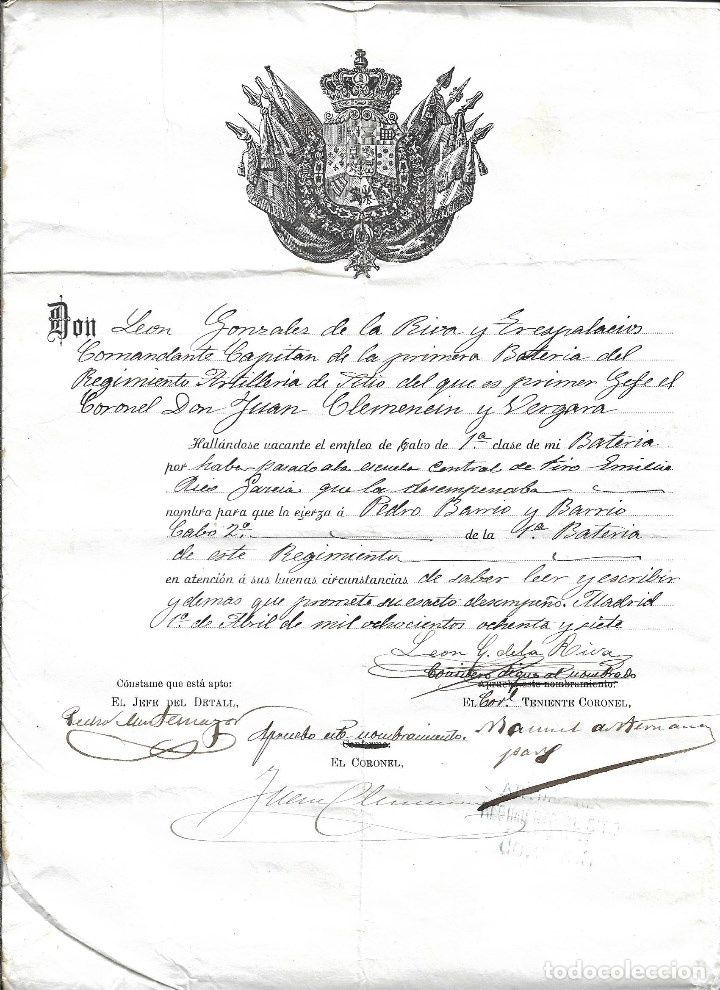 Don Leon Gonzalez de la Riva y Trespalacios
Comandante Capitan de la primera Bateria del
Regimiento Artilleria de Sitio del que es primer Gefe el
Coronel Don Juan Clemencin y Vergara
Hallándose vacante el empleo de Cabo de 1ª clase de mi Bateria
por haber pasado a la escuela central de tiro Emilio
Rico Garcia que la desempeñaba
nombro para que la ejerza á Pedro Barrio y Barrio
Cabo 2º de la 1ª Bateria
de este Regimiento
en atención á sus buenas circunstancias de saber leer y escribir
y demas que promete su esacto desempeño. Madrid
1º de Abril de mil ochocientos ochenta y siete
Leon G. de la Riva
Considero digno al nombrado
Apruebo este nombramiento:
Cónstame que está apto:
EL JEFE DEL DETALL,
EL Corl TENIENTE CORONEL,
Pedro Montemayor
Manuel
Apruebo este nombramiento.
Conforme:
EL CORONEL,
Juan Clemencin
todocoleccion